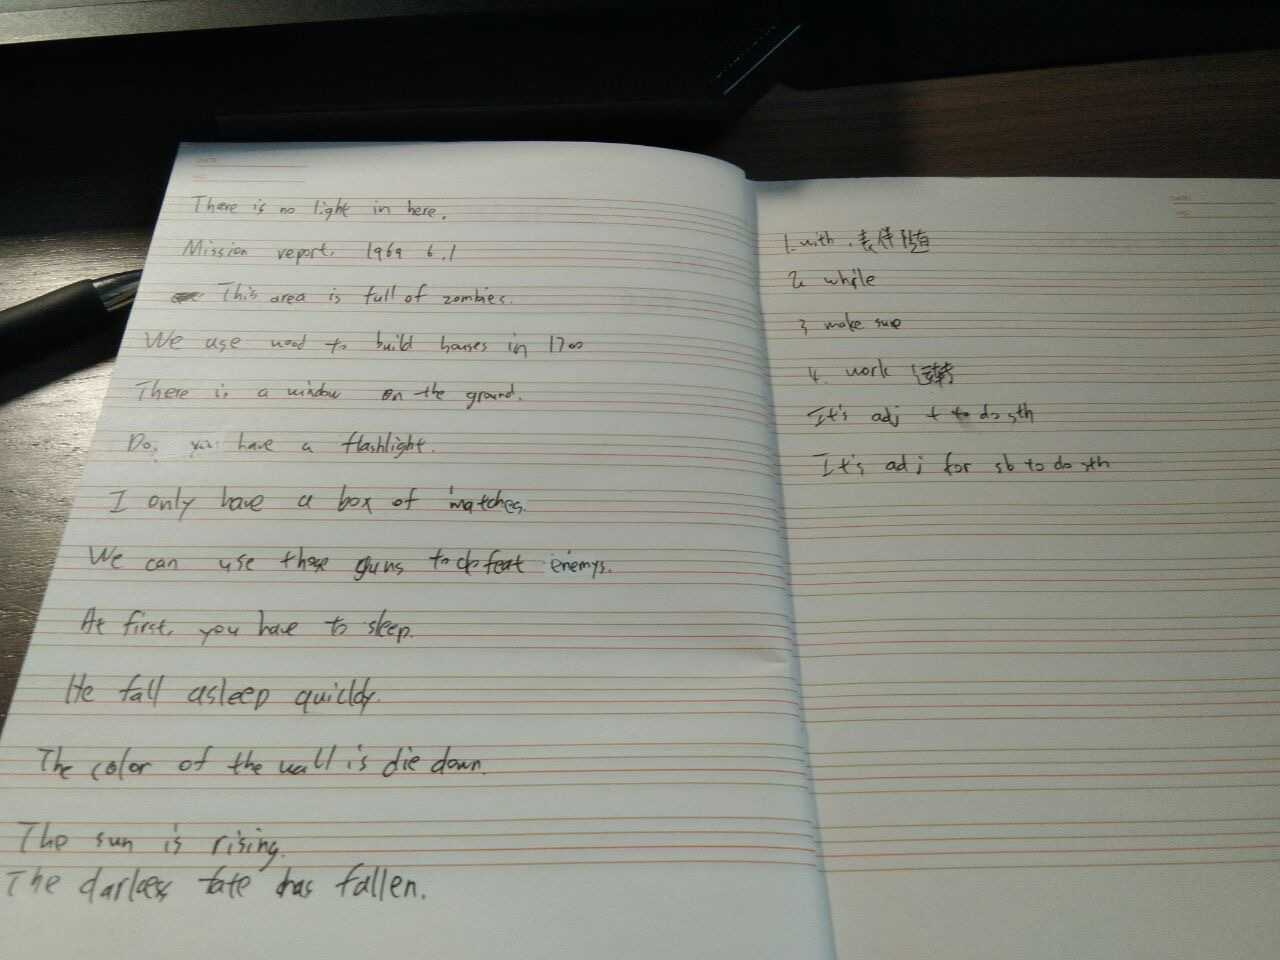 There is no light in here.
Mission report. 1969 6.1
This area is full of zombies.
We use wood to build houses in 1700
There is a window on the ground.
Do you have a flashlight.
I only have a box of matches.
We can use these guns to defeat enemys.
At first, you have to sleep.
He fall asleep quickly.
The color of the wall is die down.
The sun is rising.
The fate has fallen.
1. with . 表伴随
2. while
3 make sure
4. work 运转
It's adj + to do sth
It's adj for sb to do sth